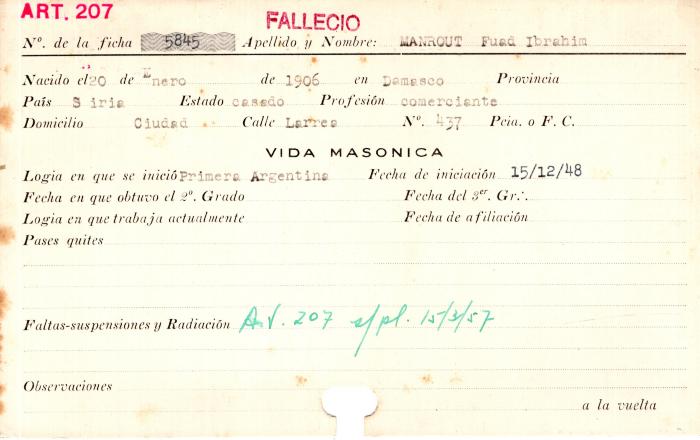 ART. 207
FALLECIO
Nº. de la ficha 5845 Apellido y Nombre: MANROUT Fuad Ibrahim
Nacido el 20 de Enero de 1906 en Damasco Provincia
País Siria Estado casado Profesión comerciante
Domicilio Ciudad Calle Larrea Nº. 437 Pcia. o F. C.
VIDA MASONICA
Logia en que se inició Primera Argentina Fecha de iniciación 15/12/48
Fecha en que obtuvo el 2º. Grado Fecha del 3er. Gr∴
Logia en que trabaja actualmente Fecha de afiliación
Pases quites
Faltas-suspensiones y Radiación 207 s/pl. 15/3/57
Observaciones
a la vuelta